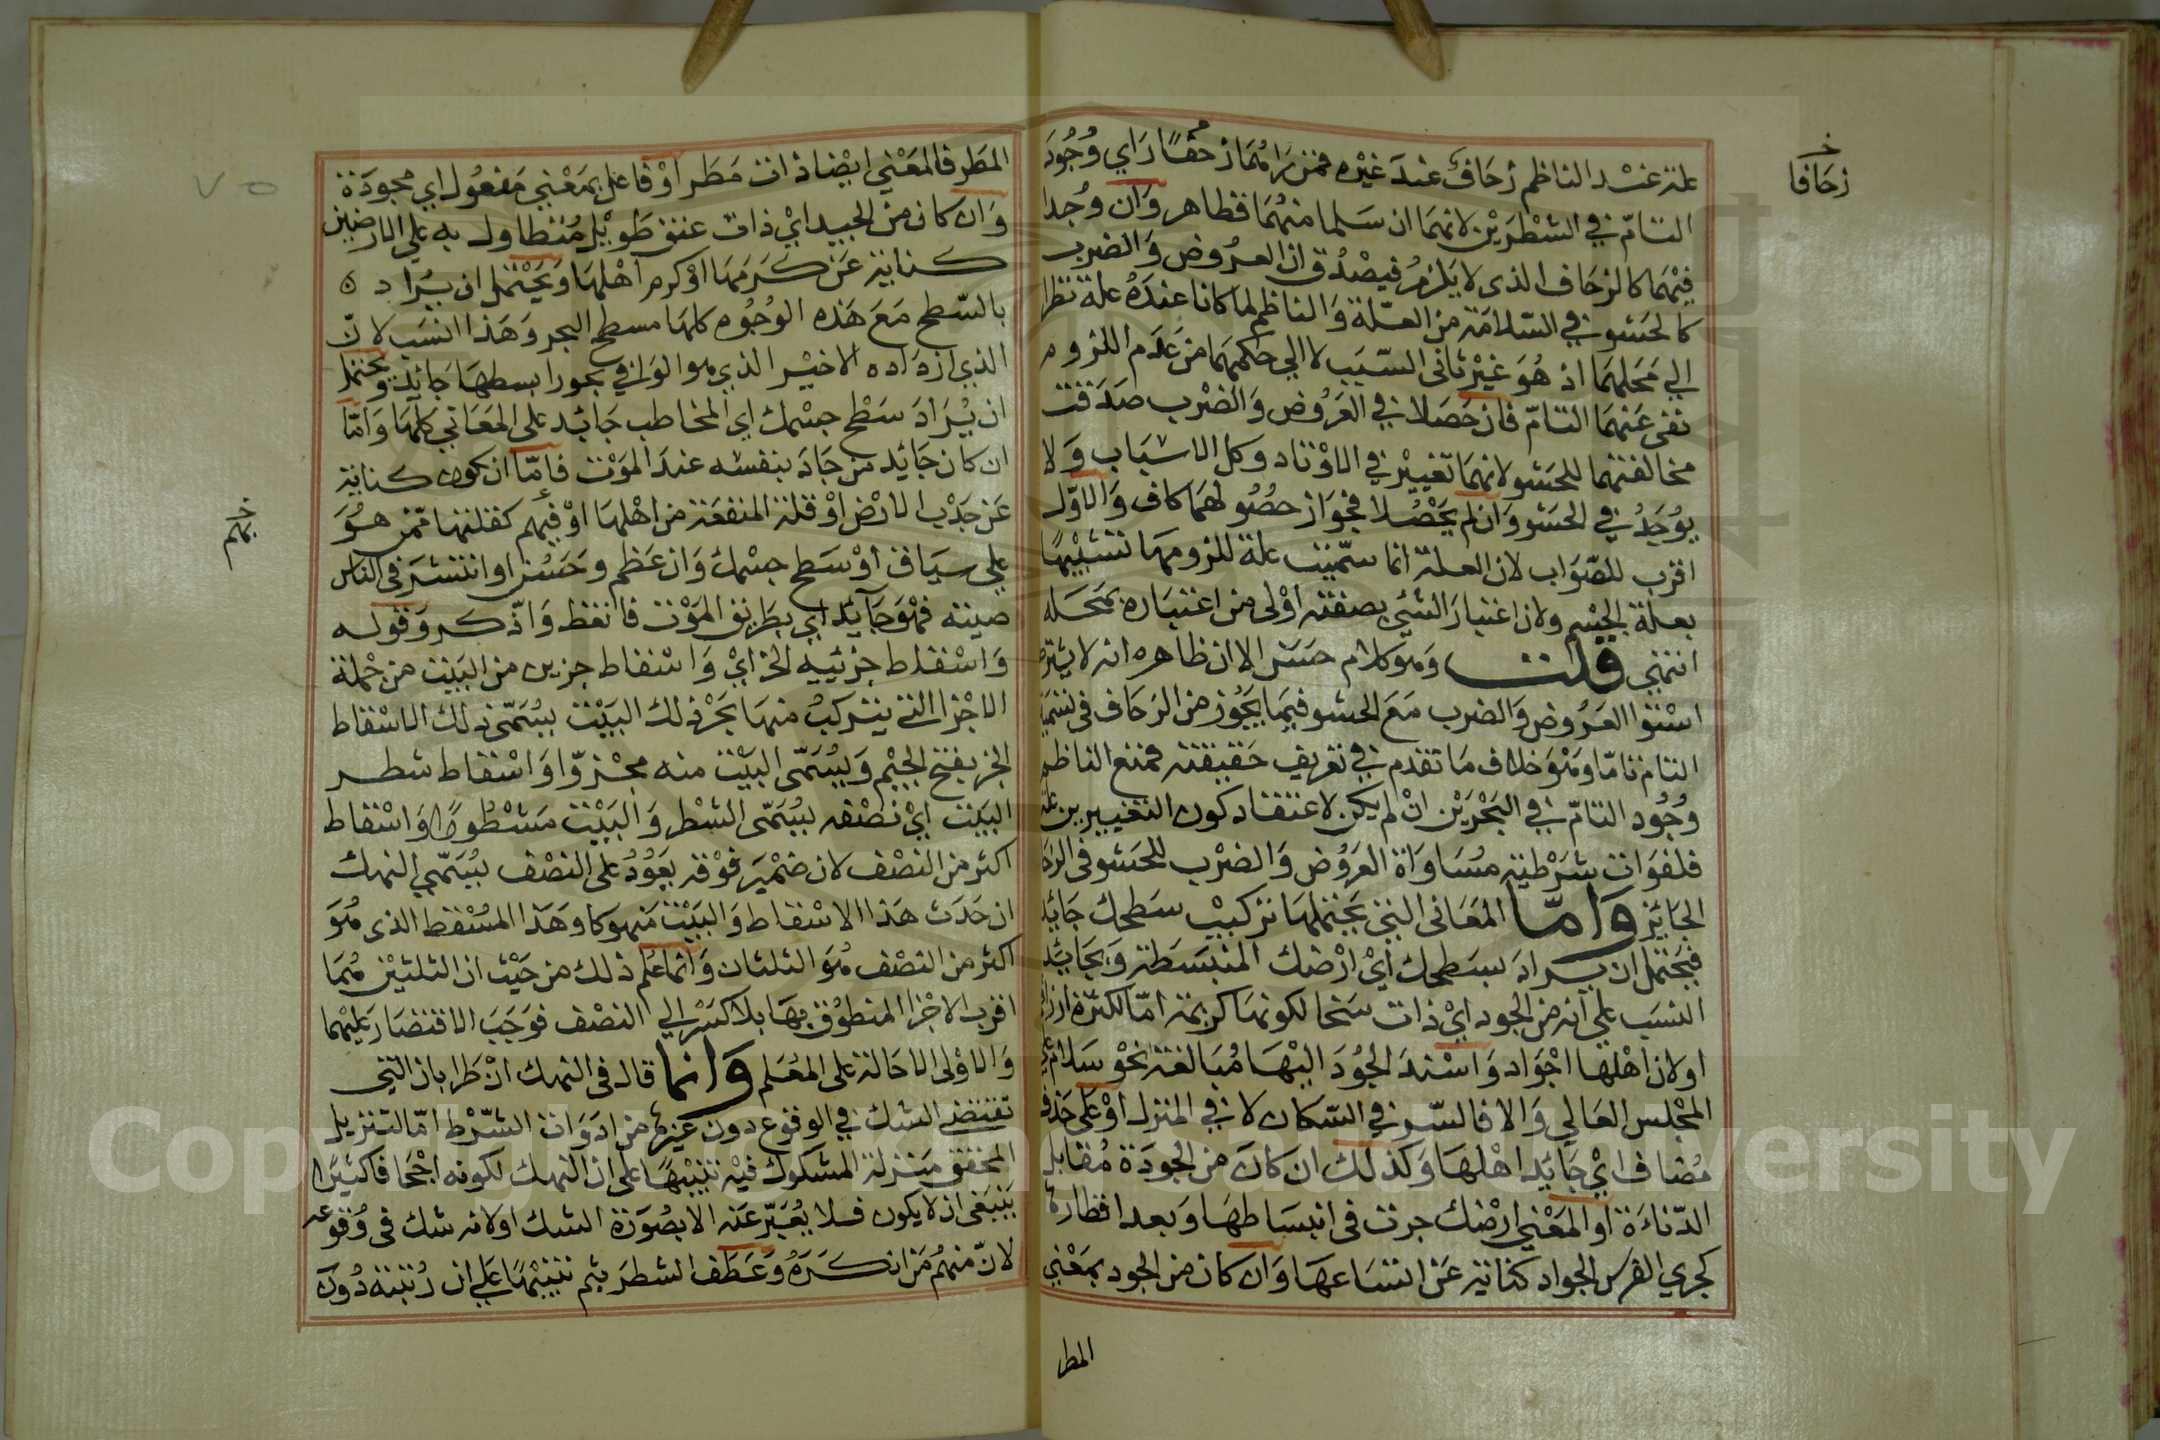 علة عند الناظم زحاف عند غيره فمن رآهما زحفا رأي وجود
زحافا
التامّ في الشطرين لانهما ان سلما منهما فظاهر وان وجدا
فيهما كالزحاف الذى لا يلزم فيصدق ان العروض والضرب
كالحشو في السّلامة من العلة والناظم لما كانا عنده علة نظرا
الي محلهما اذ هو غير ثانى السّبب لا الي حكمهما من عدم اللزوم
نفى عنهما التامّ فان حصلا في العروض والضرب صدقت
مخالفتهما للحشو لانهما تغيير في الاوتاد وكل الاسباب ولا
يوجد في الحشو وان لم يحصلا فجواز حصولهما كاف والاوّل
اقرب للصّواب لان العلة انما سمّيت علة للزومها تشبيها
بعلة الجسم ولان اعتبار الشئ بصفته اولى من اعتباره بمحله
انتهي قلت وهو كلام حسن الا ان ظاهره انه لا يشترط
استوا العروض والضرب مع الحشو فيما يجوز من الزحاف في تسمية
التام تامّا وهو خلاف ما تقدم في تعريف حقيقته فمنع الناظم
وجود التامّ في البحرين ان لم يكن لاعتقاد كون التغييرين علة
فلفوات شرطية مساواة العروض والضرب للحشو في الزحاف
الجايز وامّا المعانى التى يحتملها تركيب سطحك جائد
فيحتمل ان يراد بسطحك أي ارضك المنبسطة وبجائد
النسب علي انه من الجود اي ذات سخا لكونها كريمة امّا لكثرة ارزاق
او لان اهلها اجواد واسند الجود اليها مبالغة نحو سلام علي
المجلس العالي والا فالسّر في السّكان لا في المنزل او على حذف
مضاف اي جائد اهلها وكذلك ان كان من الجودة مقابل
الدّناءة او المعني ارضك جرت في انبساطها وبعد اقطارها
كجري الفرس الجواد كناية عن اتساعها وان كان من الجود بمعني
المطر
المطر فالمعني ايضا ذات مطر او فاعل بمعني مفعول اي مجودة
وان كان من الجيد اي ذات عنق طويل متطاول به علي الارضين
كناية عن كرمها او كرم اهلها ويحتمل ان يراد
بالسّطح مع هذه الوجوه كلها مسطح البحر وهذا انسب لانّ
الذي اراده الاخير الذي هو الوافي بحور ابسطها جائد ويحتمل
ان يراد سطح جسمك اي المخاطب جائد علي المعاني كلها وامّا
ان كان جائد من جاد بنفسه عند الموت فامّا ان كون كناية
عن جدب الارض او قلة المنفعة من اهلها او فيهم كفلتها ممّن هو
بهم
علي سياق او سطح جسمك وان عظم وحسن او انتشر في الناس
صيته فهو جآئد اي بطريق الموت فاتعظ واذّكر وقوله
واسقاط جزئييه الخ اي واسقاط جزين من البيت من جملة
الاجزا التي يتركب منها بحر ذلك البيت يسمّى ذلك الاسقاط
الجز بفتح الجيم ويسمّى البيت منه مجزوّا واسقاط شطر
البيت اي نصفه يسمّى الشطر والبيت مشطورا واسقاط
اكثر من النصف لان ضمير فوقه يعود على النصف يسمّي النهك
ان حدث هذا الاسقاط والبيت منهوكا وهذا المسقط الذى هو
اكثر من النصف هو الثلثان وانما علم ذلك من حيث ان الثلثين هما
اقرب الاجزا المنطوق بها بلا كسر الي النصف فوجب الاقتصار عليهما
والاولى الاحالة على المعلم وانما قال في النهك ان طرا بان التي
تقتضي الشك في الوقوع دون غيرها من ادوات الشّرط امّا لتنزيل
المحقق منزلة المشكوك فيه تنبيها على ان النهك لكونه اجحافا كثيرا
ينبغى ان لا يكون فلا يعبّر عنه الا بصورة الشك او لانه شك في وقوعه
لانّ منهم من انكره وعطف الشطر بثم تنبيها علي ان رتبته دون